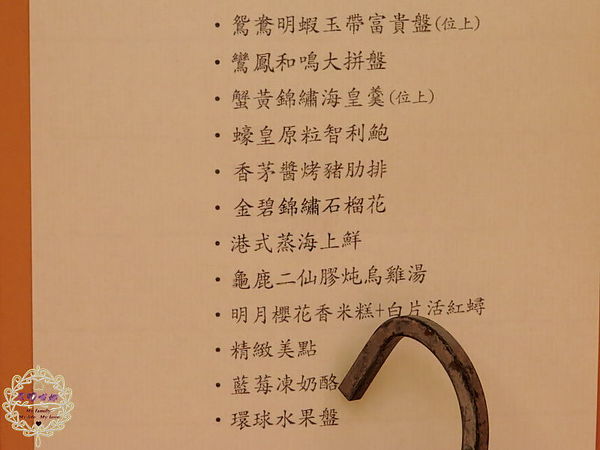 ・鴛鴦明蝦玉帶富貴盤(位上)
・鸞鳳和鳴大拼盤
・蟹黃錦繡海皇羹(位上)
・蠔皇原粒智利鮑
・香茅醬烤豬肋排
・金碧錦繡石榴花
・港式蒸海上鮮
・龜鹿二仙膠炖烏雞湯
・明月櫻花香米糕+白片活紅蟳
・精緻美點
・藍莓凍奶酪
・環球水果盤
My family
My life. My love